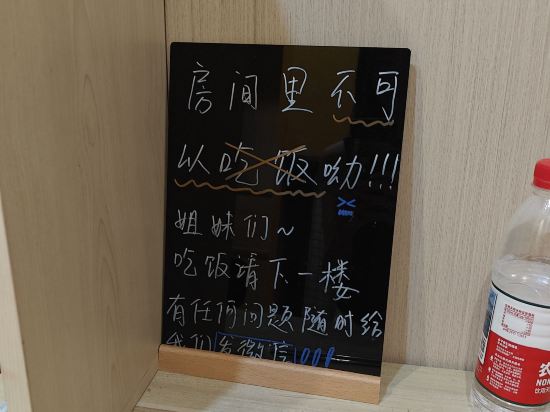 房间里不可
以吃饭呦!!!
姐妹们~
吃饭请下一楼
有任何问题随时给
我们发微信
农
NON